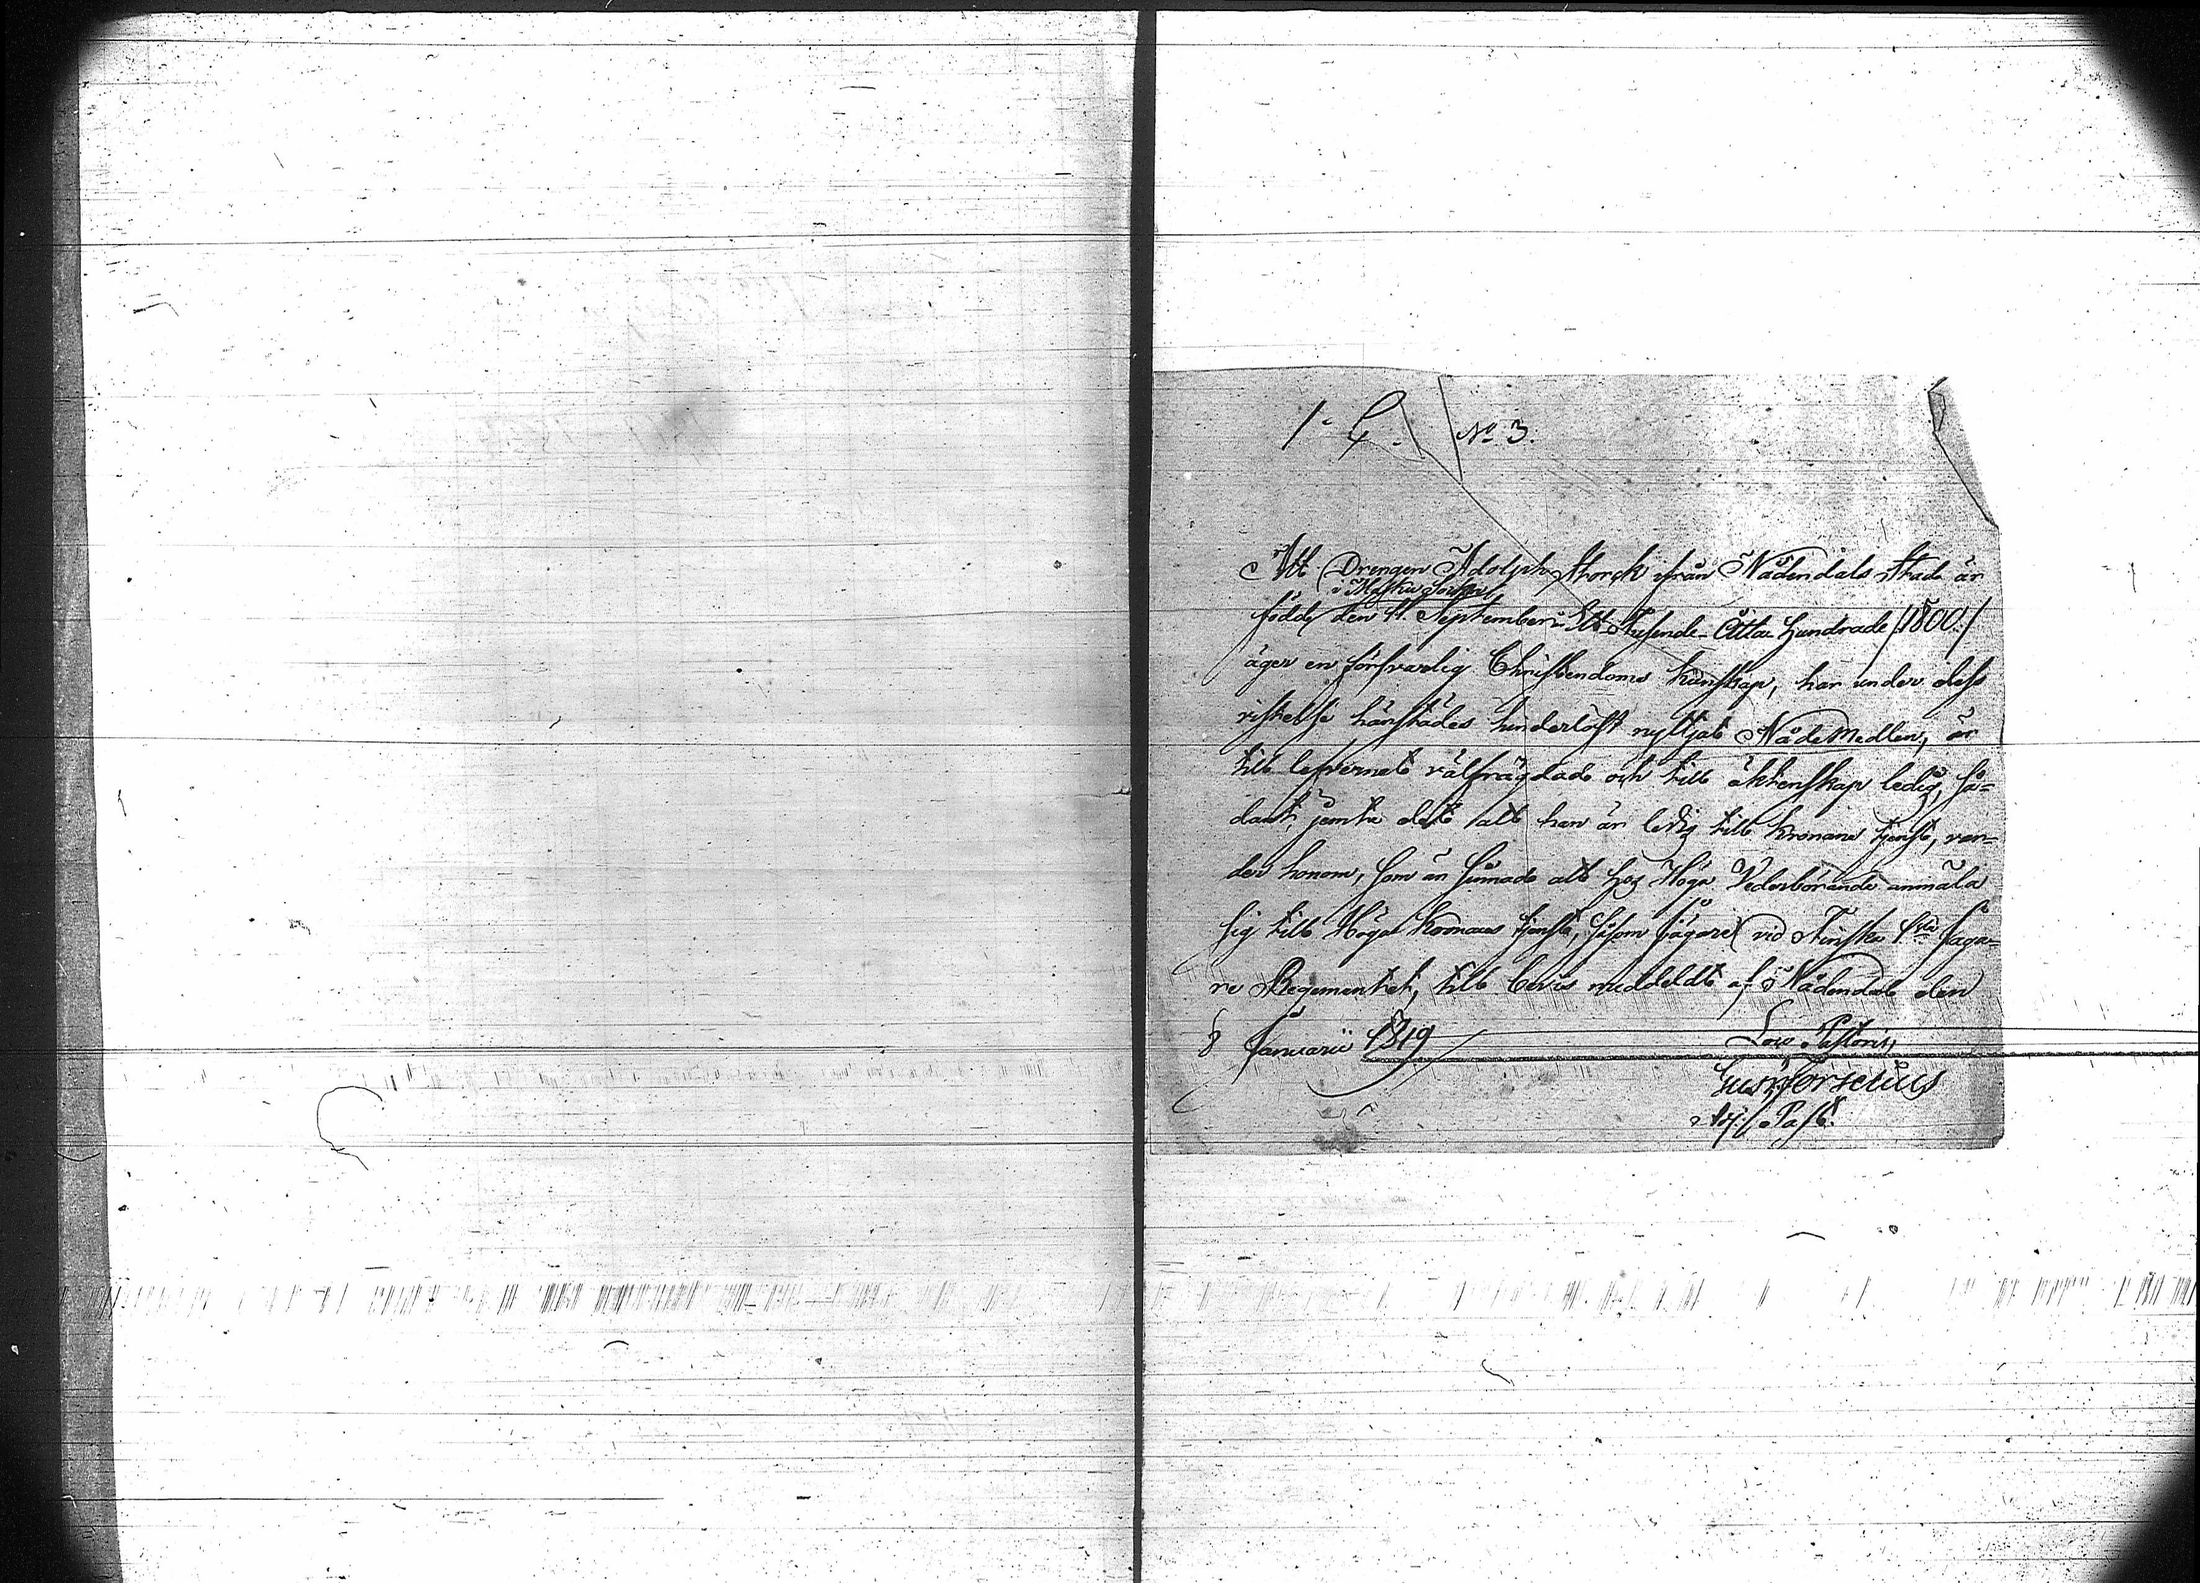 1. C. No 3.
Att Drengen Adolph Storck ifrån Nådendals Stad är
i Masku Socken
född den 11. September Ett Tusende Åtta Hundrade /:1800:/
äger en försvarlig Christendoms kunskap, har under dess
vistelse härstädes hinderlöst nyttjat Nådemedlen, är
till lefvernet välfrägdad och till äktenskap ledig, så-
dant, jemte det att han är ledig till kronans tjenst, var-
der honom, som är sinnad att hos Höga Vederbörande anmäla
sig till Höga Kronans tjenst, såsom Jägare vid Finska 1sta Jäga-
re Regementet, till bevis meddeldt af Nådendal den
8 Januarii 1819
Loco Pastoris,
Gust. Forselius
Adj. Past.